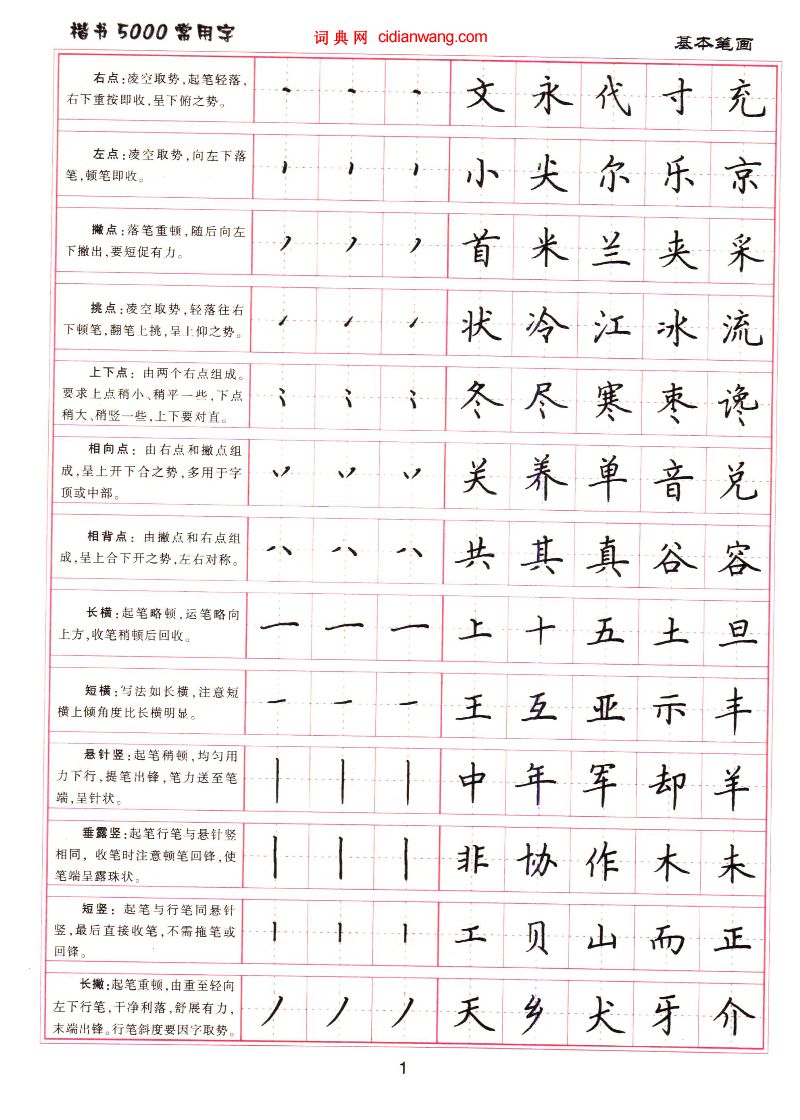 楷书5000常用字
词典网 cidianwang.com
基本笔画
右点:凌空取势,起笔轻落,
右下重按即收,呈下俯之势。
文 永 代 寸 充
左点:凌空取势,向左下落
笔,顿笔即收。
小 尖 尔 乐 京
撇点:落笔重顿,随后向左
下撇出,要短促有力。
首 米 兰 夹 采
挑点:凌空取势,轻落往右
下顿笔,翻笔上挑,呈上仰之势。
状 冷 江 冰 流
上下点:由两个右点组成。
要求上点稍小、稍平一些,下点
稍大、稍竖一些,上下要对直。
冬 尽 寒 枣 谗
相向点:由右点和撇点组
成,呈上开下合之势,多用于字
顶或中部。
关 养 单 音 兑
相背点:由撇点和右点组
成,呈上合下开之势,左右对称。
共 其 真 谷 容
长横:起笔略顿,运笔略向
上方,收笔稍顿后回收。
上 十 五 土 旦
短横:写法如长横,注意短
横上倾角度比长横明显。
王 互 亚 示 丰
悬针竖:起笔稍顿,均匀用
力下行,提笔出锋,笔力送至笔
端,呈针状。
中 年 军 却 羊
垂露竖:起笔行笔与悬针竖
相同,收笔时注意顿笔回锋,使
笔端呈露珠状。
非 协 作 木 未
短竖:起笔与行笔同悬针
竖,最后直接收笔,不需拖笔或
回锋。
工 贝 山 而 正
长撇:起笔重顿,由重至轻向
左下行笔,干净利落,舒展有力,
末端出锋。行笔斜度要因字取势。
天 乡 犬 牙 介
1